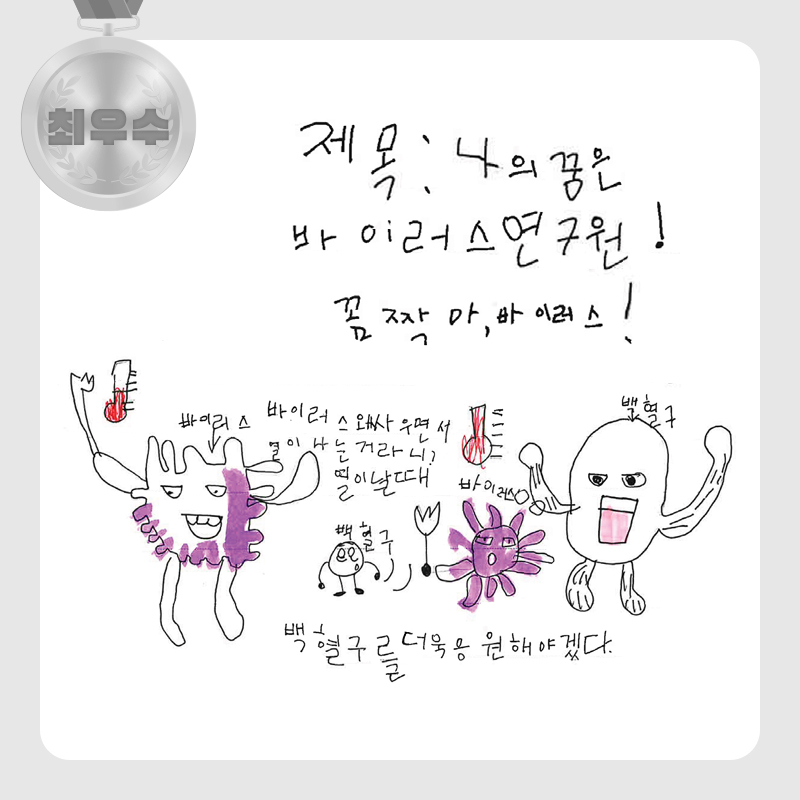 최우수
제목: 나의 꿈은
바이러스연구원!
꼼짝 마, 바이러스!
바이러스
바이러스와싸우면서
열이 나는거라니?
열이날때
백혈구
바이러스
백혈구
백혈구를더욱응원해야겠다.